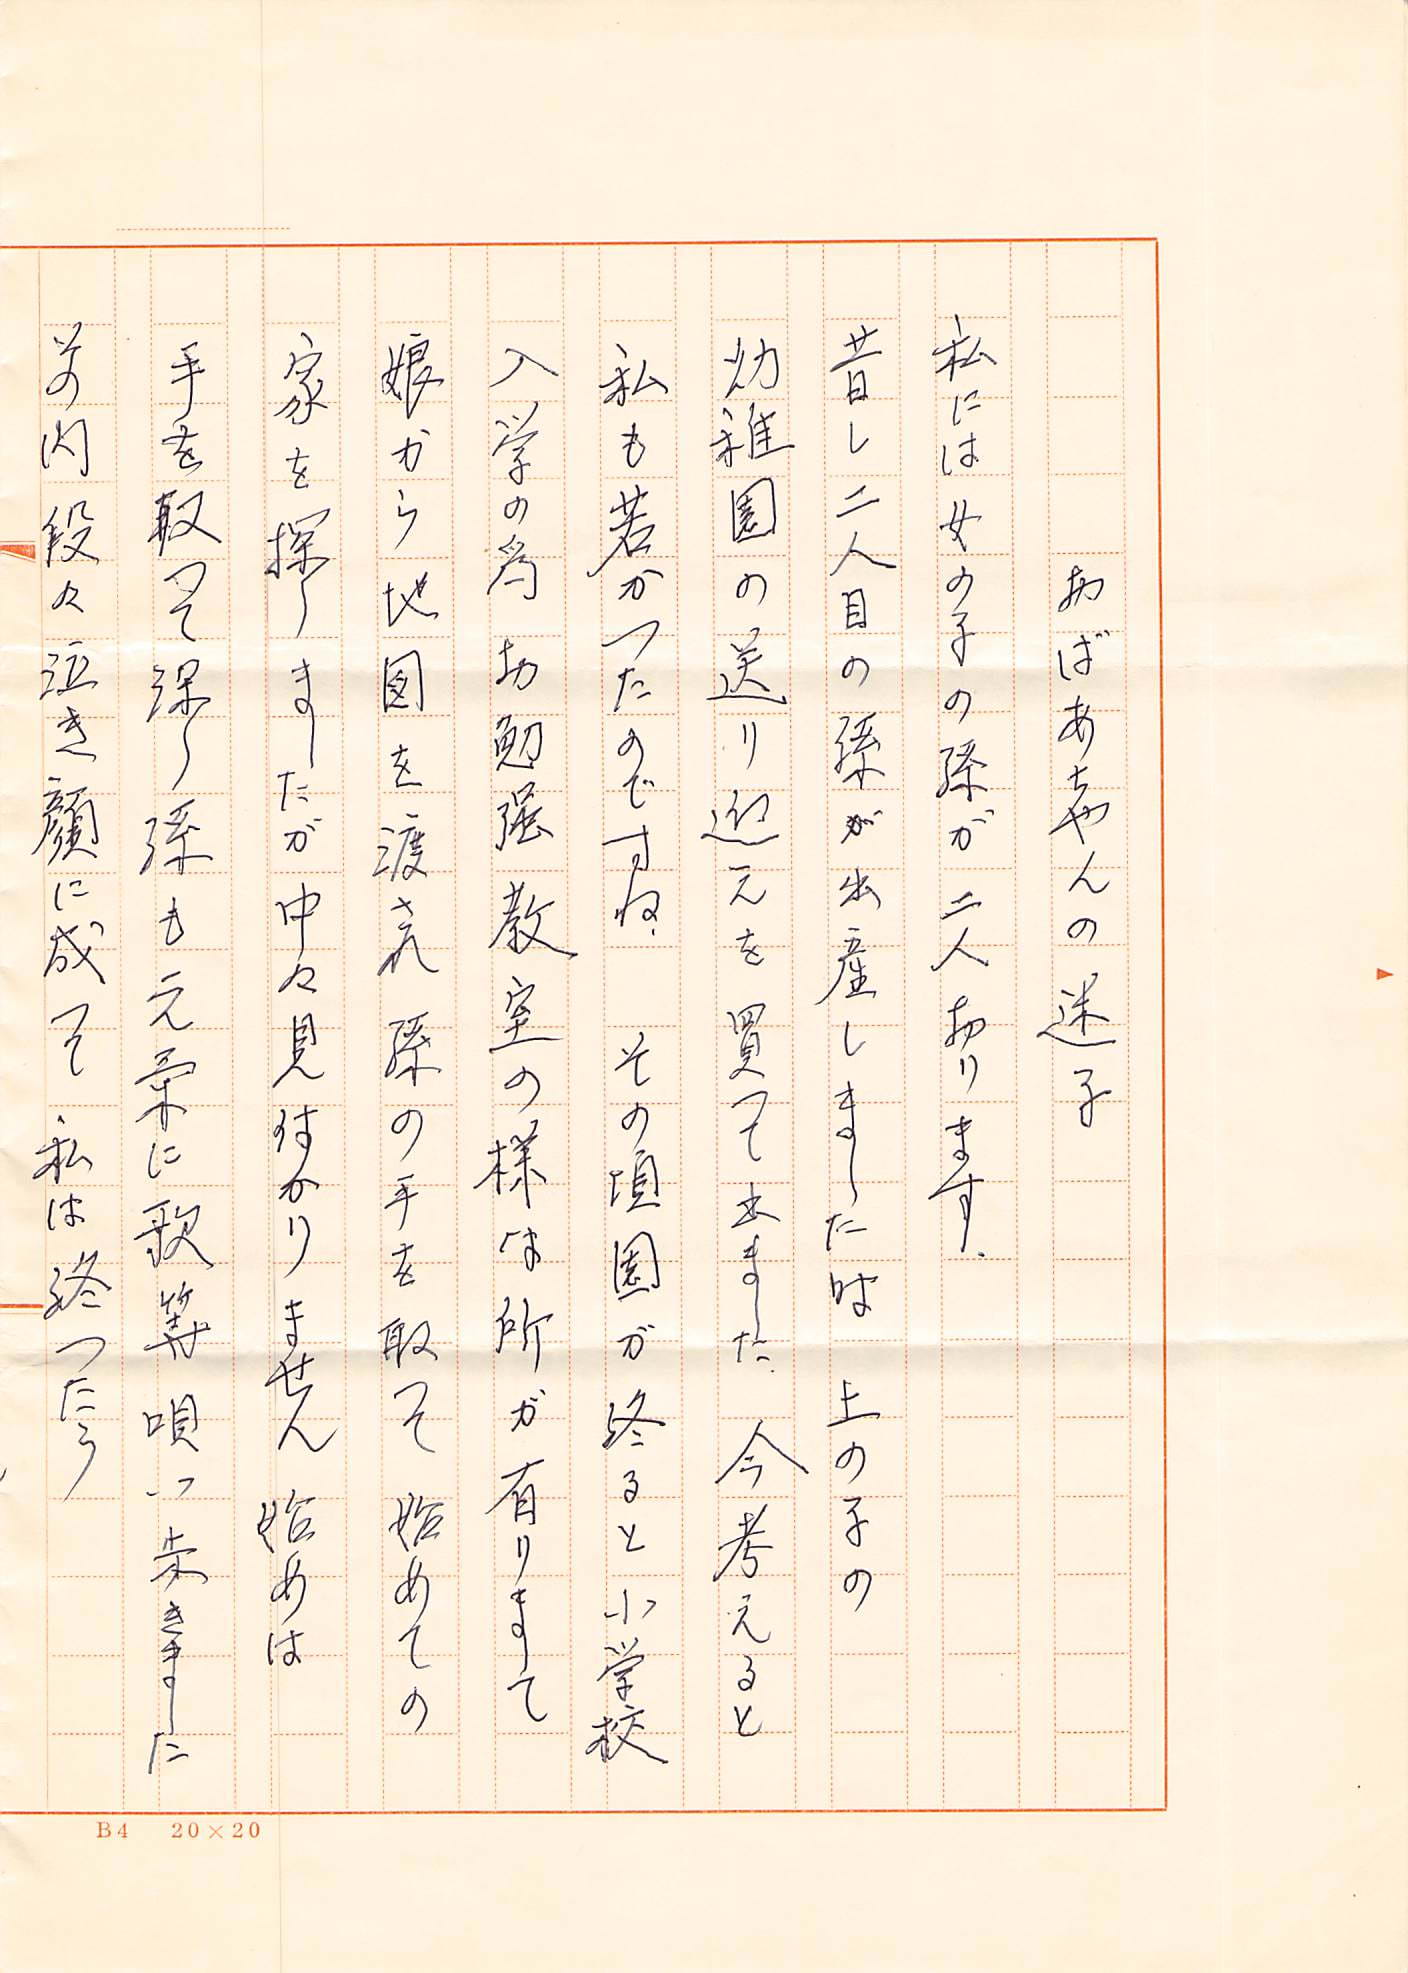 おばあちゃんの迷子
私には女の子の孫が二人おります.
昔し二人目の孫が出産しました時 上の子の
幼稚園の送り迎えを買って出ました. 今考えると
私も若かったのですね. その頃園が終ると小学校
入学の為お勉強教室の様は所が有りまして
娘から地図を渡され孫の手を取って始めての
家を探しましたが中々見付かりません 始めは
手を取って探し孫も元気に歌等唄い歩きました
その内段々泣き顔に成って 私は終ったら
B4 20×20